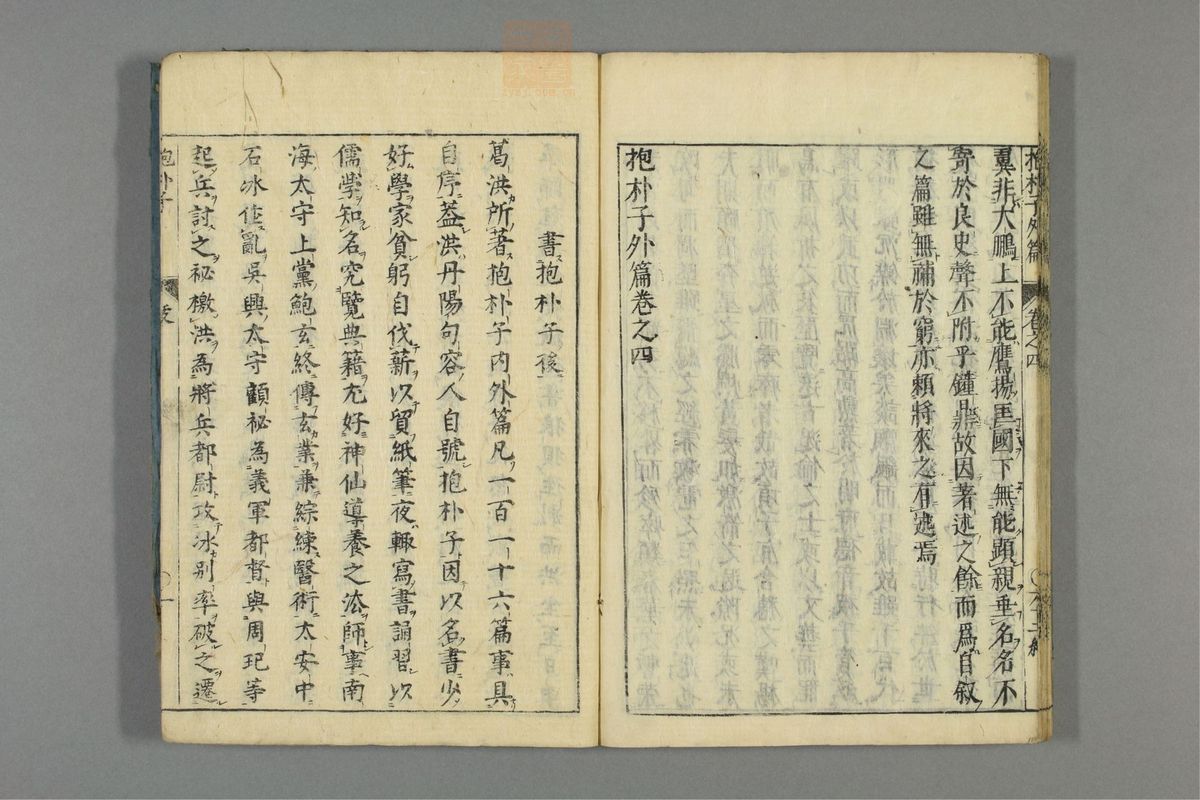 抱朴子外篇 卷之四
翼非大鵬上不能鷹揚匡國下無能顯親垂名名不
寄於良史聲不附乎鐘鼎故因著述之餘而爲自叙
之篇雖無補於窮亦賴將來之有述焉
抱朴子外篇卷之四
書抱朴子後
葛洪所著抱朴子内外篇凡一百一十六篇事具
自序葢洪丹陽句容人自號抱朴子因以名書少
好學家貧躬自伐薪以貿紙筆夜輙寫書誦習以
儒學知名究覽典籍尢好神仙導養之法師事南
海太守上黨鮑玄終傳玄業兼綜練醫術太安中
石冰作亂吳興太守顧祕為義軍都督與周玘等
起兵討之祕檄洪為將兵都尉攻冰别率破之遷
抱朴子 一